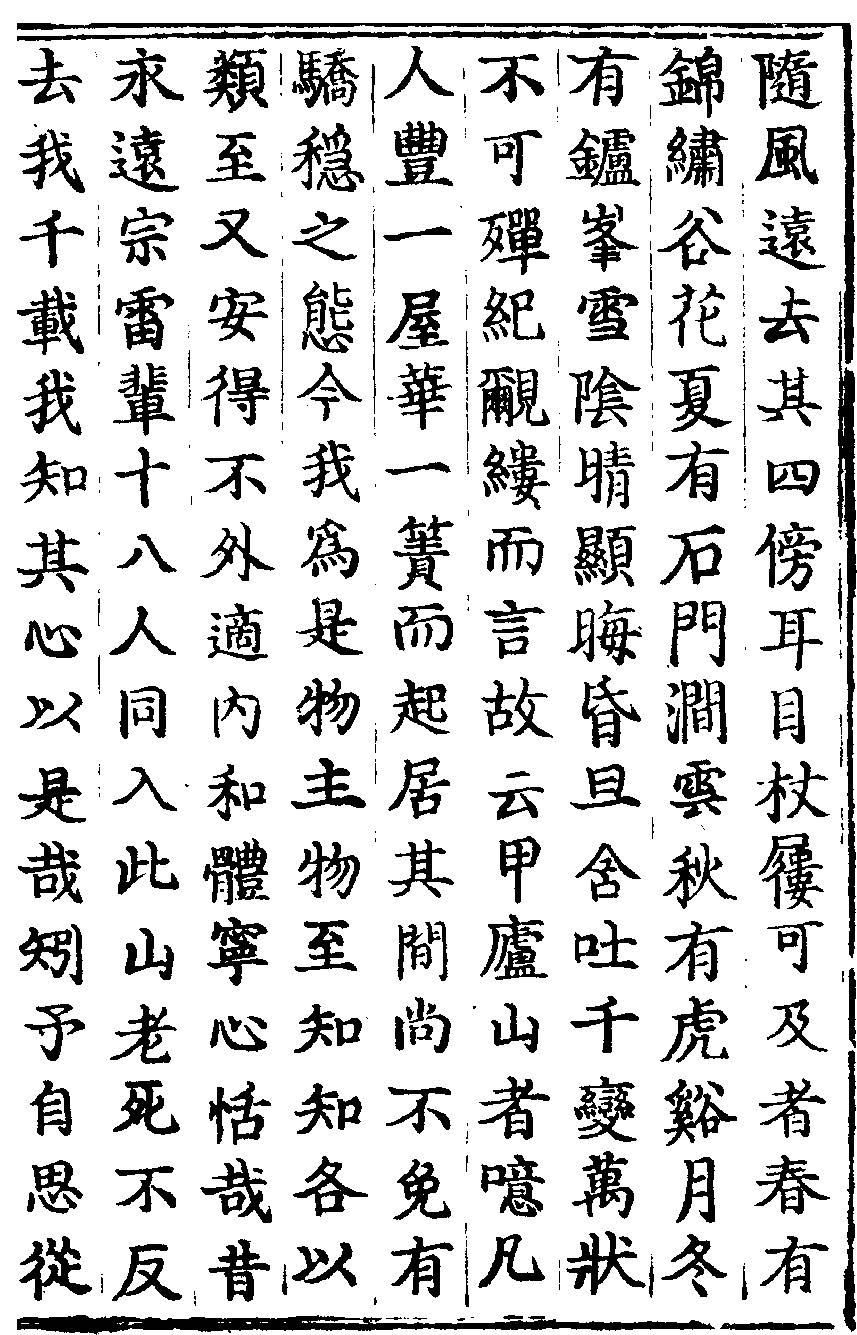 隨風遠去其四傍耳目杖屨可及者春有
錦繡谷花夏有石門澗雲秋有虎谿月冬
有鑪峯雪陰晴顯晦昏旦含吐千變萬狀
不可殫紀覼縷而言故云甲廬山者噫凡
人豐一屋華一簣而起居其間尚不免有
驕穩之態今我爲是物主物至知知各以
類至又安得不外適內和體寧心恬哉昔
永遠宗雷輩十八人同入此山老死不反
去我千載我知其心以是哉矧予自思從